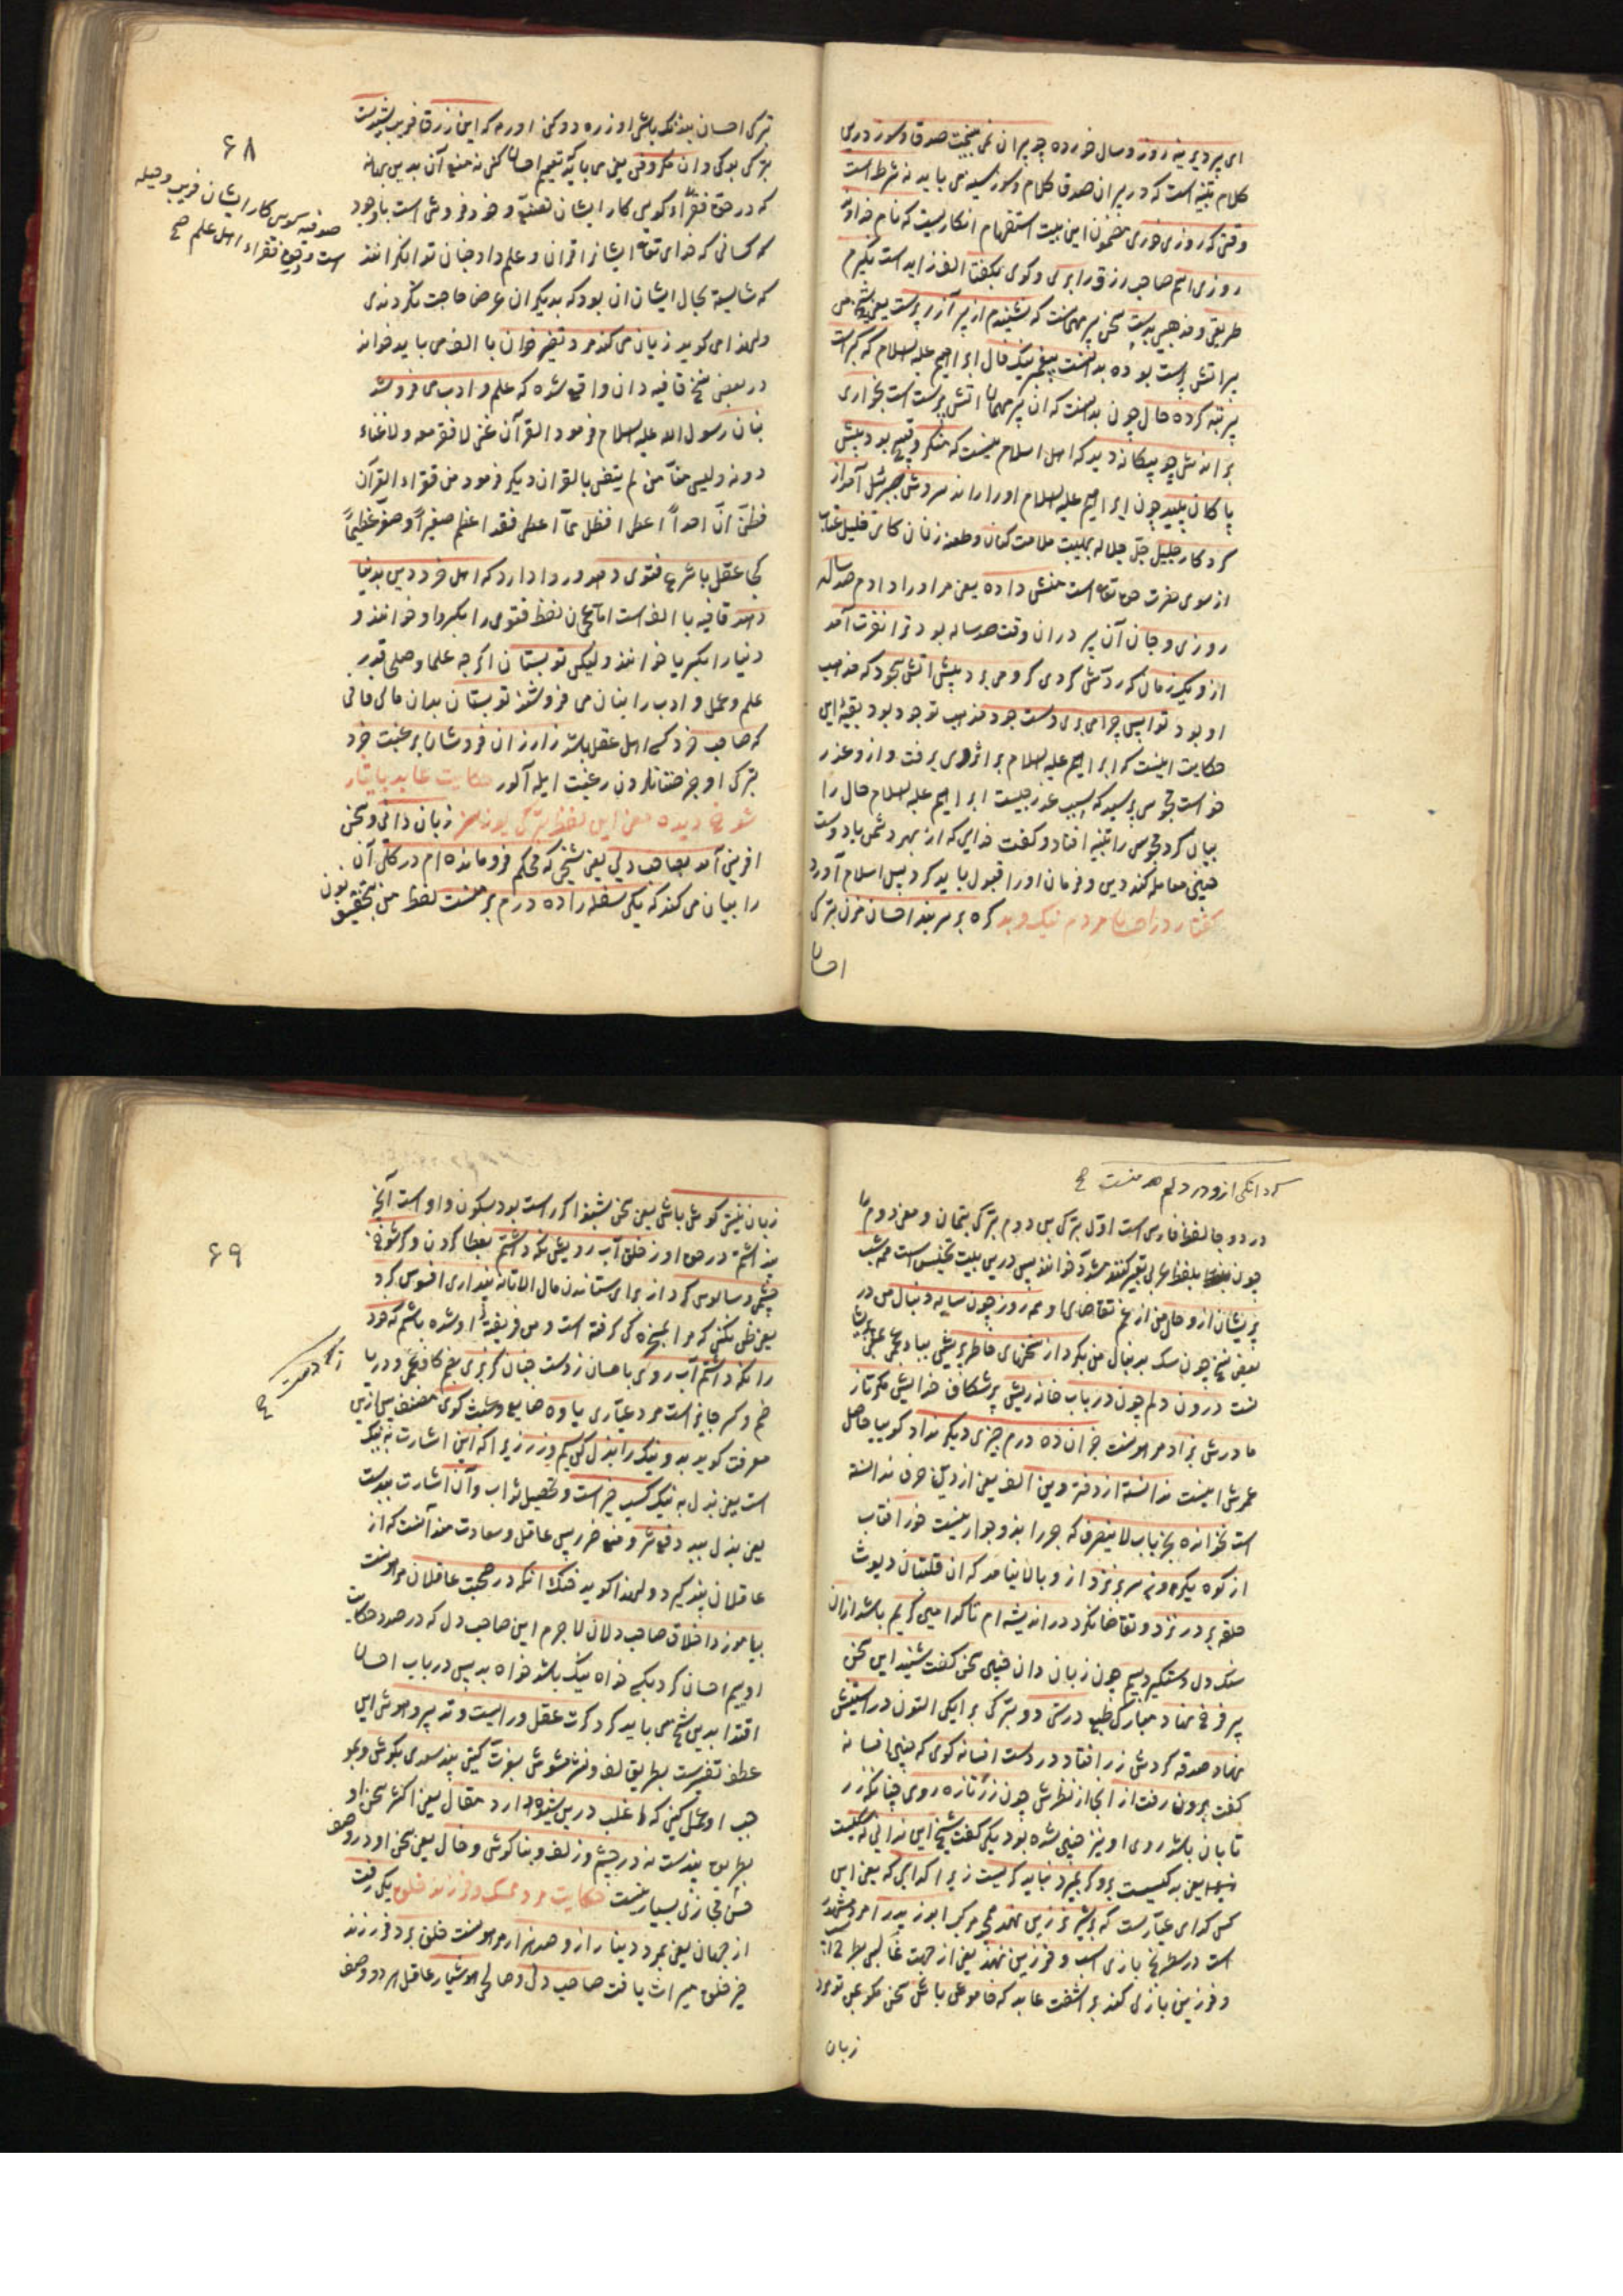 ای پیر دیرینه روز و سال خورده چو پیران نمی بینمت صدق و سوز در دی
کلام تنبیه است که در پیران صدق کلام و سوز سینه می باید نه شرط است
وقتی که روزی خوری مضمون این بیت استفهام انکاریست که نام خداوند
روزی ای صاحب رزق را بری و کوی بکفتا الف زاید است نکیرم
طریقی و مذهبی بدست سخن پیر مهمانست که نشنیدم از پیر آزر پرست یعنی
پیر اتش پرست بوده بدانست پیغمبر نیک فال ابراهیم علیه السلام که کبرست
پیر تبه کرده حال چون بدانست که ان پیر مهمان اتش پرست است بخواری
براندش چو بیکانه دید که اهل اسلام نیست که منکر و قبیح بود پیش
پاکان پلید چون ابراهیم علیه السلام او را راند سروش جبرئیل آمد از
کردکار جلیل جل جلاله بهیبت ملامت کنان و طعنه زنان کای خلیل
از سوی حضرت حق تعالی است منش داده یعنی من او را دادم صد سال
روزی و جان آن پیر در ان وقت صد ساله بود ترا نفرت آمد
از و یک زمان که رد آتش کردی کر و می برد پیش اتش سجود که مذهب
او بود تو واپس چرا می بری دست جود مذهب تو جود بود بقیه این
حکایت اینست که ابراهیم علیه السلام بر اثر وی برفت و ازو عذر
خواست مجوس پرسید که سبب عذر چیست ابراهیم علیه السلام حال را
بیان کرد مجوسی را تنبیه افتاد و کفت خدایی که از بهر دشمن با دوست
چنین معامله کند دین و فرمان او را قبول باید کرد پس اسلام آورد
کفتار در احسان مردم نیک و بد کره بر سر بند احسان مزن بترکی
احسان
۶۸
ترکی احسان بغنک باشی اوزره دوکن اورمه که این زرق و فریب شیدست
بترکی بو کی و ان مکر و فن یعنی می باید تعمیم احسان کنی نه منع آن بدین بهانه
که در حق فقراء کویی کار ایشان تصنع و خود فروشی است با وجود
که کسانی که خدای تعالی ایشانرا قران و علم داد چنان توانکرانند
که شایسته بحال ایشان ان بود که بدیکران عرض حاجت نکردندی
ولهذا می کوید زیان می کند مرد تفسیر خوان با الف می باید خواند
در بعضی نسخ قافیه دان واقع شده که علم و ادب می فروشد
بنان رسول الله علیه السلام فرمود القرآن غنی لا فقر معه و لا غناء
دونه و لیس منا من لم یتغن بالقران دیکر فرمود من قراء القرآن
فظن ان احداً اعطی افضل مما اعطی فقد اعظم صغیراً و صغر عظیماً
کجا عقل با شرع فتوی دهد و روا دارد که اهل خرد دین بدنیا
دهد قافیه با الف است
دنیا را بکسر یا خوانند ولیکن تو بستان اکر چه علما و صلحا
علم و عمل و ادب را بنان می فروشند تو بستان بدان مالی فانی
که صاحب خرد کسی اهل عقل باشد ز ارزان فروشان برغبت خرد
بترکی اوجز صتانلردن رغبت ایله آلور حکایت عابد با ایثار
شوخ دیده معنی این لفظ بترکی یوزسز زبان دانی و سخن
افرینی آمد بصاحبدلی یعنی شیخی که محکم فرو مانده ام در کل آن
را بیان می کند که یکی سفله را ده درم بر منست لفظ من
صوفیه کویی کار ایشان فریب و حیله
است وجوه فقراء اهل علم صح
که دانکی ازو در دلم ده منست صح
در دو جا لفظ فارسی است اول بترکی بن دوم بترکی بتمان و معنی دوم را
چون بلفظ عربی تعبیر کنند مشدّد خوانند پس درین بیت تجنیس است همه شب
پریشان ازو حال من از غم تقاضای او همه روز چون سایه دنبال من در
بعضی نسخ چون سک بدنبال من بکرد از سخنهای خاطر پریش
لست درون دلم چون در باب خانه ریش پر شکاف خدایش مکر تا ز
مادرش بزاد مر او نست جز ان ده درم چیزی دیکر نداد کوییا حاصل
عمرش اینست ندانسته از دفتر دین الف یعنی از دین حرف ندانسته
است نخوانده بجز باب لا ینصرف که جر را بدو جواز نیست خور افتاب
از کوه یکروز سر بر نزد از و بالا نیامد که ان قلتبان دیوث
حلقه بر در نزد و تقاضا نکرد در اندیشه ام تا کدامین کریم باشد ازان
سنک دل دستکیر دبیم چون زبان دان چنین سخن کفت شنید این سخن
پیر فرخ نهاد مبارک طبع درستی دو بترکی بر ایکی التون در استینش
نهاد و صدقه کردش زر افتاد در دست افسانه کوی که چنین افسانه
کفت برون رفت از آنجا از نظرش چون زر تازه روی چنانکه زر
تابان باشد روی او نیز چنین شده بود یکی کفت شیخ این ندانی که کیست
یعنی بد کسیست برو کر بمیرد نباید کریست زیرا که کدایی که یعنی این
کس کدای عیارست که بر شیر نر زین نهد همچو مرکب ابو زید را
است در سطرنج بازی اسب و فرزین نهند یعنی از جهت غالبی
و فرزین بازی کند بر اشفت عابد که خاموش باش سخن مکو
زبان
۶۹
زبان نیستی کوش باش یعنی سخن بشنو اکر راست بود سکون واو است آنچه
پنداشتم در حق او ز خلق آب رویش نکه داشتم بعطا کردن و کر شوخ
چشمی و سالوس کرد از برای ستاندن مال الا تا نپنداری افسوس کرد
یعنی ظن نکنی که مرا بسخره کی کرفته است و من فریفته او شده باشم که خود
را نکه داشتم آب روی باحسان ز دست چنان کربزی بضم کاف عجمی و در با
ضم و کسر جایز است مرد عیاری یاوه ضایع و شت کوی مصنف پس ازین
معرفت کوید بد و نیک را بذل کن سیم و زر زیرا که این اشارت به نیک
است یعنی بذل به نیک کسب خیر است و تحصیل ثواب و آن اشارت ببدست
یعنی بذل ببد دفع شر و منع ضرر پس عاقل و سعادت مند آنست که از
عاقلان پند کیرد ولهذا کوید خنک آنکه در صحبت عاقلان مر او نست
بیاموزد اخلاق صاحب دلان لا جرم این صاحب دل که در صدد حکایت
اوییم احسان کرد یکی خواه نیک باشد خواه بد پس در باب احسان
اقتدا بدین شیخ می باید کرد کرت عقل و رایست و تدبیر و هوش این
عطف تفسیرست بطریق لف و نشر مشوش بعزت کنی پند سعدی بکوش
او عمل کنی که اغلب درین شیوه دارد مقال یعنی اکثر سخن او
بطریق پندست نه در چشم و زلف و بناکوش و خال یعنی سخن او در وصف
حسن مجازی بسیار نیست حکایت مرد ممسک و فرزند خلف یکی رفت
از جهان یعنی بمرد دینار ازو صد هزار مر او نست خلف برد فرزند
خیر خلق میراث یافت صاحب دلی و صالحی هوشیار عاقل هر دو وصف